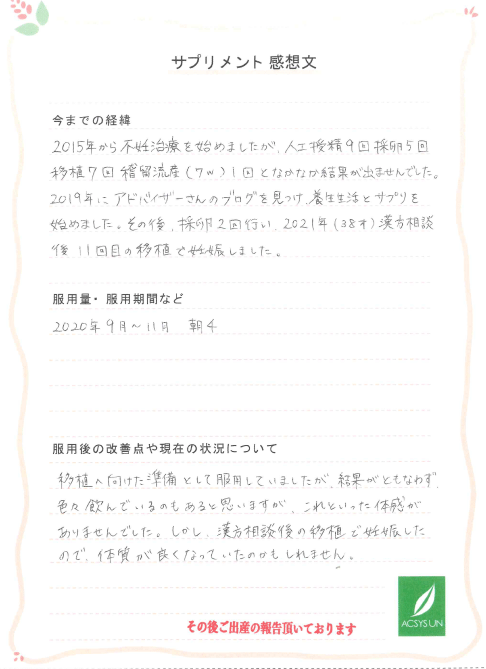 サプリメント 感想文
今までの経緯
2015年から不妊治療を始めましたが、人工授精9回採卵5回
移植7回稽留流産(7w)1回となかなか結果が出ませんでした。
2019年にアドバイザーさんのブログを見つけ、養生生活とサプリを
始めました。その後、採卵2回行い、2021年(38才)漢方相談
後11回目の移植で妊娠しました。
服用量・服用期間など
2020年9月〜11月 朝4
服用後の改善点や現在の状況について
移植へ向けた準備として服用していましたが、結果がともなわず、
色々飲んでいるのもあると思いますが、これといった体感が
ありませんでした。しかし、漢方相談後の移植で妊娠した
ので、体質が良くなっていたのかもしれません。
ACSYSUN
その後ご出産の報告頂いております